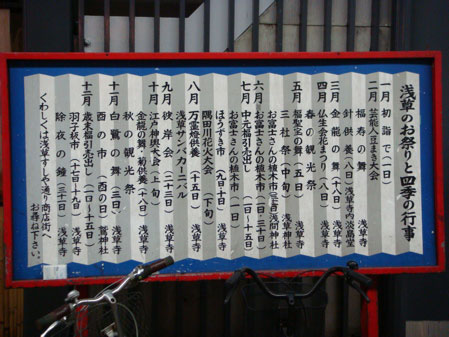 浅草のお祭りと四季の行事
一月 初詣で(一日)
二月 芸能人豆まき大会
福寿の舞 浅草寺
針供養(八日)浅草寺内淡島堂
三月 金龍の舞(十八日) 浅草寺
四月 仏生会花まつり(八日) 浅草寺
春の観光祭
五月 福聚宝の舞(五日) 浅草寺
三社祭(中旬) 浅草神社
六月 お富士さんの植木市(一日〜三十日)
お富士さんの植木市(一日)
七月 中元福引大売出し(一日〜十五日)
ほうずき市(九日〜十日) 浅草寺
隅田川花火大会(下旬)
八月 万霊燈籠供養(十五日) 浅草寺
浅草サンバカーニバル
九月 彼岸会(二十三日) 浅草寺
十月 江戸神輿大会(上旬)
金龍の舞・菊供養(十八日) 浅草寺
秋の観光祭
十一月 白鷺の舞(三日) 浅草寺
酉の市(酉の日) 鷲神社
十二月 歳末福引大売出し(一日〜十五日)
羽子板市(十七日〜十九日) 浅草寺
除夜の鐘(三十一日) 浅草寺
くわしくは浅草すしや通り商店街へ
お尋ね下さい。